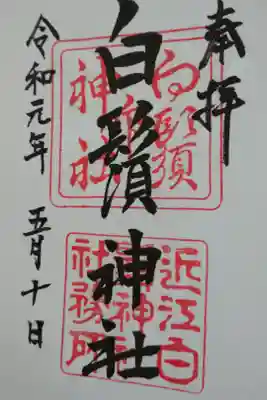 奉拝
白鬚神社
令和元年 五月十日
白鬚神社
近江白鬚神社社務所